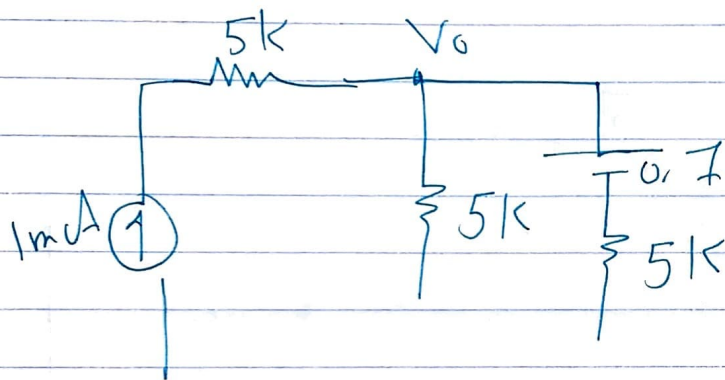 5k
Vo
1mA
5k
0.7
5k